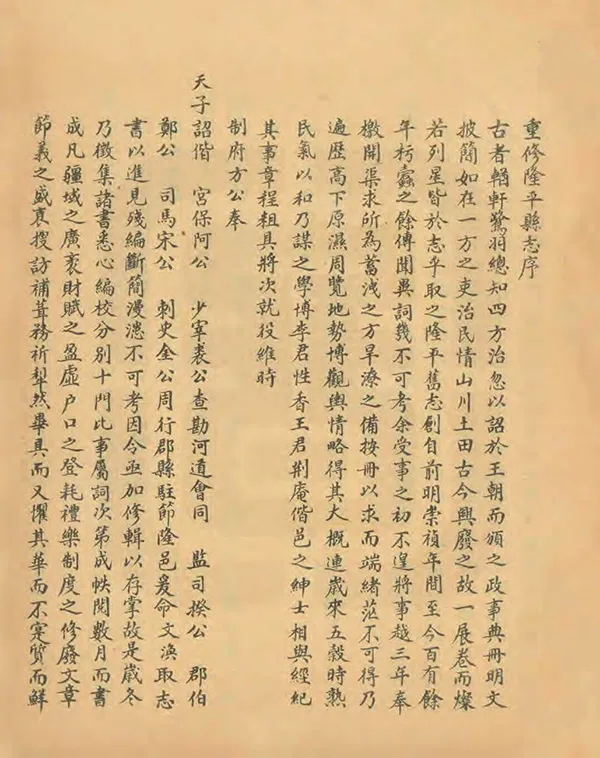 重修隆平縣志序
古者輶軒鷺羽總知四方治忽以詔於王朝而頒之政事典冊明文
披簡如在一方之吏治民情山川土田古今興廢之故一展卷而燦
若列星皆於志乎取之隆平舊志創自前明崇禎年間至今百有餘
年朽蠹之餘傳聞異詞幾不可考余受事之初不遑將事越三年奉
檄開渠求所為蓄洩之方旱潦之備按冊以求而端緒茫不可得乃
遍歷高下原濕周覽地勢博觀輿情略得其大概連歲來五穀時熟
民氣以和乃謀之學博李君性香王君荆庵偕邑之紳士相與經紀
其事章程粗具將次就役維時
制府方公奉
天子詔偕 宮保阿公 少宰裘公查勘河道會同 監司揆公 郡伯
鄭公 司馬宋公 刺史金公周行郡縣駐節隆邑爰命文渙取志
書以進見殘編斷簡漫漶不可考因令亟加修輯以存掌故是歲冬
乃徵集諸書悉心編校分別十門比事屬詞次第成帙閱數月而書
成凡疆域之廣袤財賦之盈虛户口之登耗禮樂制度之修廢文章
節義之盛衰搜訪補葺務祈犁然畢具而又懼其華而不寔質而鮮